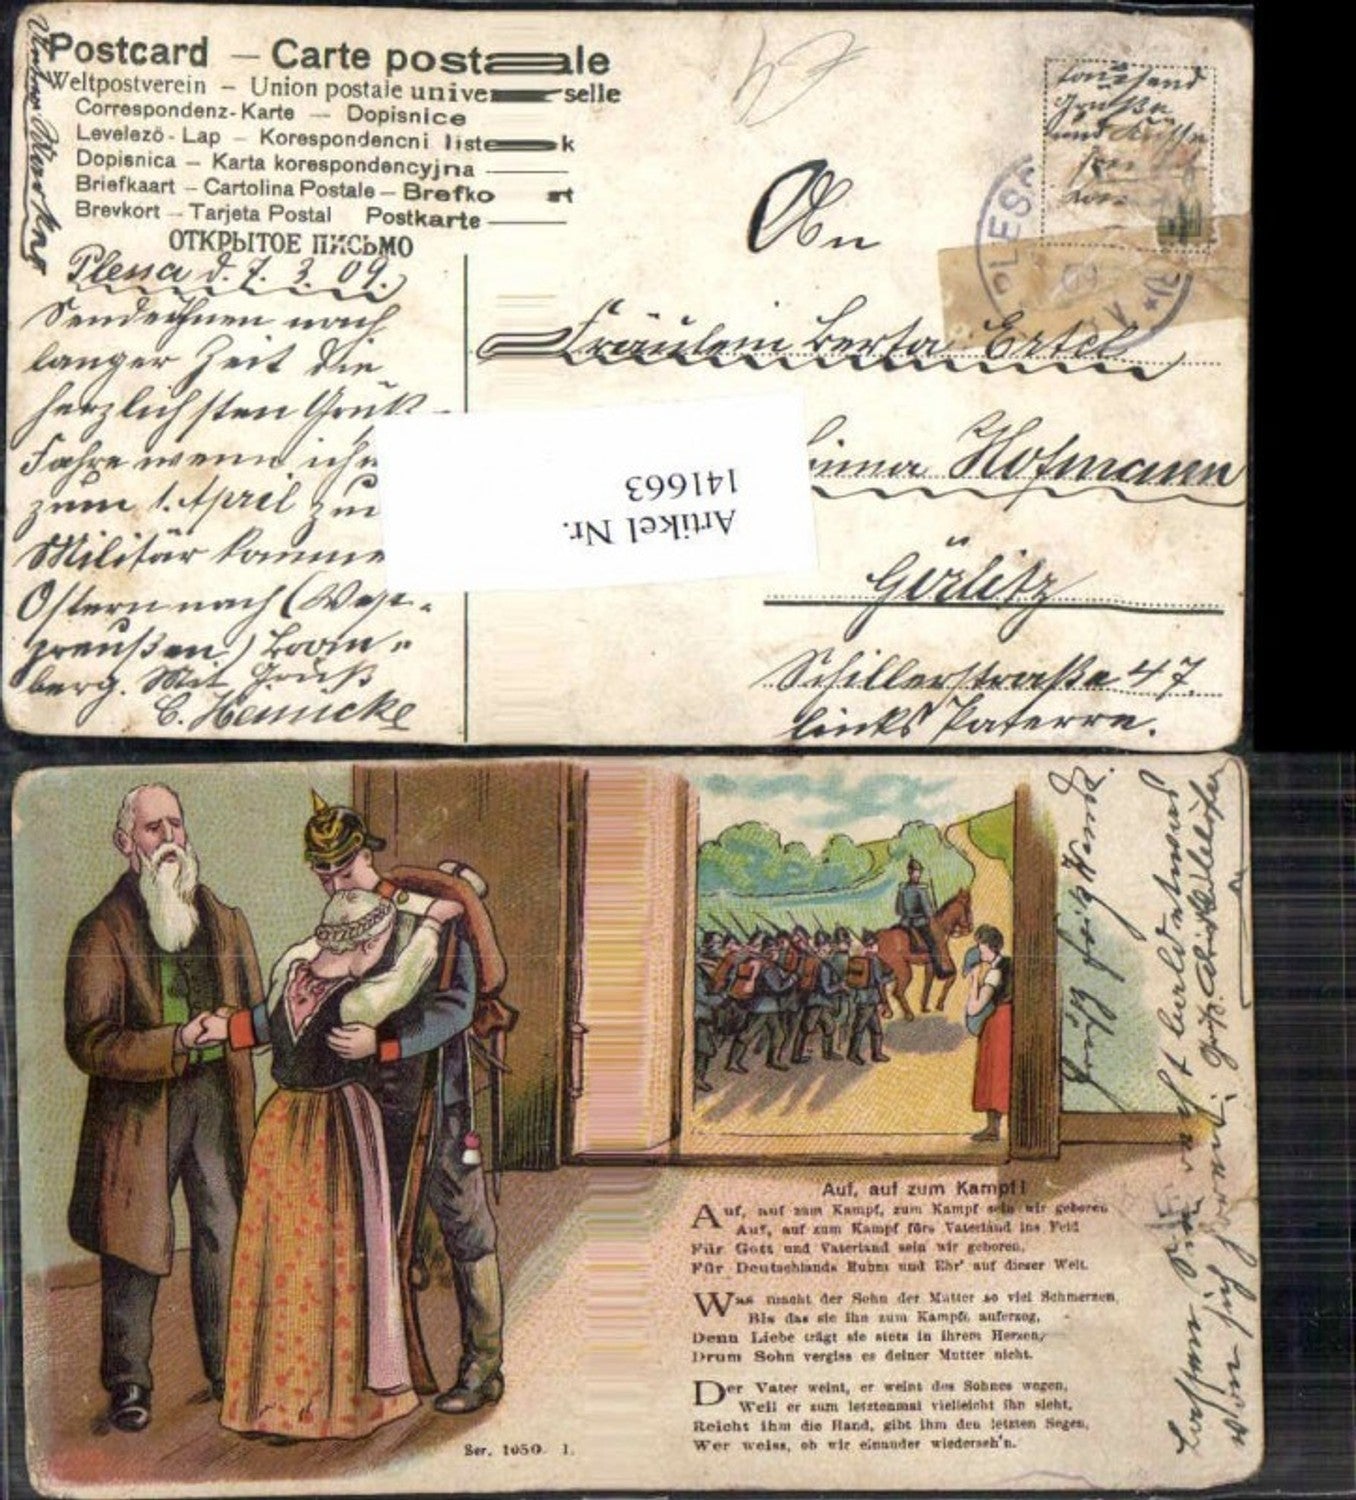 Postcard – Carte postale
Weltpostverein – Union postale universelle
Correspondenz-Karte – Dopisnice
Levelező-Lap – Korespondencni listek
Dopisnica – Karta korespondencyjna
Briefkaart – Cartolina Postale – Brefkort
Brevkort – Tarjeta Postal Postkarte
ОТКРЫТОЕ ПИСЬМО
Plessa d. 7. 3. 09.
Sende Ihnen nach
langer Zeit die
herzlichsten Grüß-
Fahre wenn ich
zum 1. April zu
Militär komme
Ostern nach (West-
preußen) Brom-
berg. Mit Gruß
tausend
Grüße
und Küsse
PLESSA
An
Fräulein Berta Ertel
Hofmann
Görlitz
Schillerstraße 47.
links Paterre.
Artikel Nr.
141663
Auf, auf zum Kampf!
Auf, auf zum Kampf, zum Kampf sein wir geboren
Auf, auf zum Kampf fürs Vaterland ins Feld
Für Gott und Vaterland sein wir geboren,
Für Deutschlands Ruhm und Ehr' auf dieser Welt.
Was macht der Sohn der Mutter so viel Schmerzen,
Bis das sie ihn zum Kampfe auferzog,
Denn Liebe trägt sie stets in ihrem Herzen,
Drum Sohn vergiss es deiner Mutter nicht.
Der Vater weint, er weint des Sohnes wegen,
Weil er zum letztenmal vielleicht ihn sieht,
Reicht ihm die Hand, gibt ihm den letzten Segen,
Wer weiss, ob wir einander wiederseh'n.
Ser. 1050. 1.